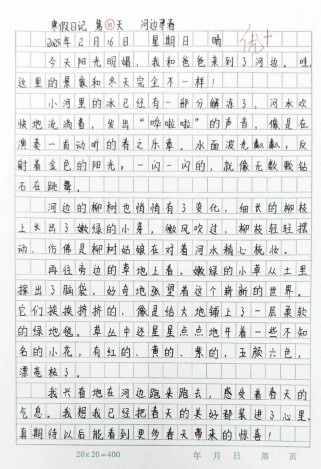 寒假日记 第㉚天 河边寻春
2025年2月16日 星期日 晴
优+
今天阳光明媚，我和爸爸来到了河边。哇，
这里的景象和冬天完全不一样！
小河里的冰已经有一部分解冻了，河水欢
快地流淌着，发出“哗啦啦”的声音，像是在
演奏一首动听的春之乐章。水面波光粼粼，反
射着金色的阳光，一闪一闪的，就像无数颗钻
石在跳舞。
河边的柳树也悄悄有了变化，细长的柳枝
上长出了嫩绿的小芽，微风吹过，柳枝轻轻摆
动，仿佛是柳树姑娘在对着河水精心梳妆。
再往旁边的草地上看，嫩绿的小草从土里
探出了脑袋，好奇地张望着这个崭新的世界。
它们挨挨挤挤的，像是给大地铺上了一层柔软
的绿地毯。草丛中还星星点点地开着一些不知
名的小花，有红的、黄的、紫的，五颜六色，
漂亮极了。
我兴奋地在河边跑来跑去，感受着春天的
气息。我想我已经把春天的美好都装进了心里，
真期待以后能看到更多春天带来的惊喜！
20×20=400 年 月 日 第 页